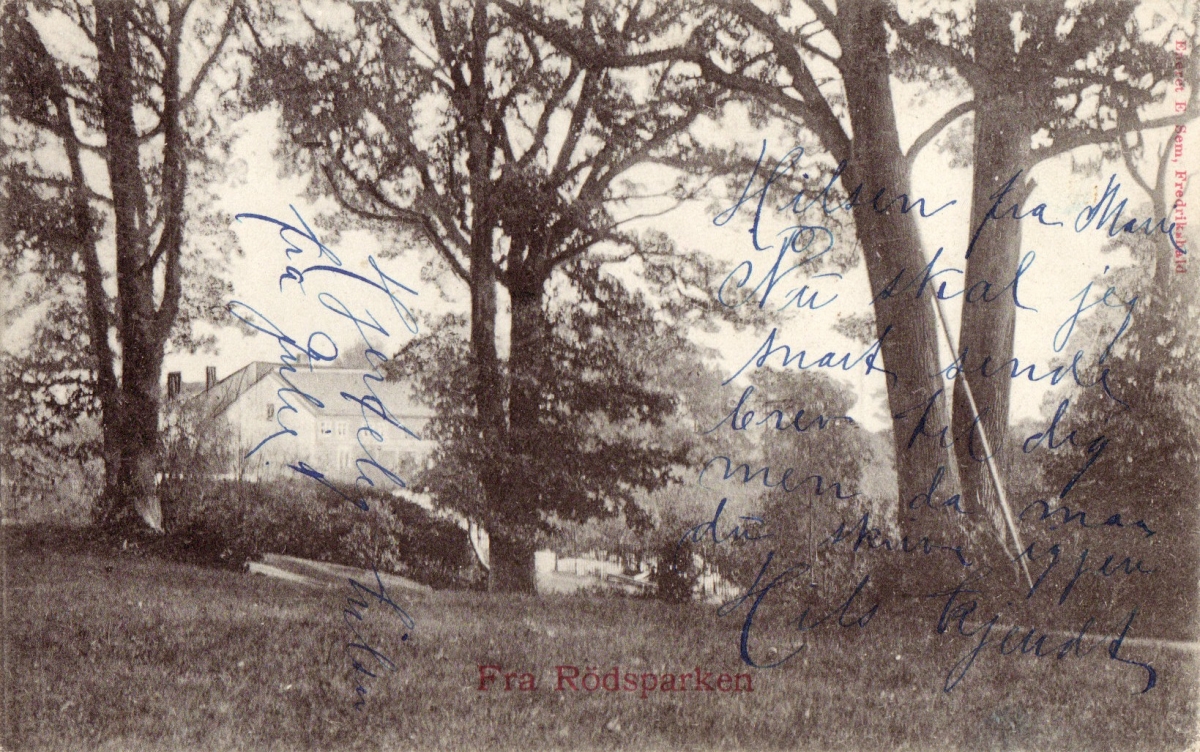 Hilsen fra Marie
Nu skal jeg
snart sende
brev til dig
men da maa
du skrive igjen
Hils kjendt
Hjertelig hilsen
fra
Fra Rödsparken
Eneret E. Sem, Fredrikshald